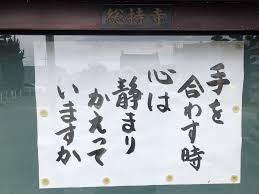 総持寺
手を
合わす時
心は
静まり
かえって
いますか